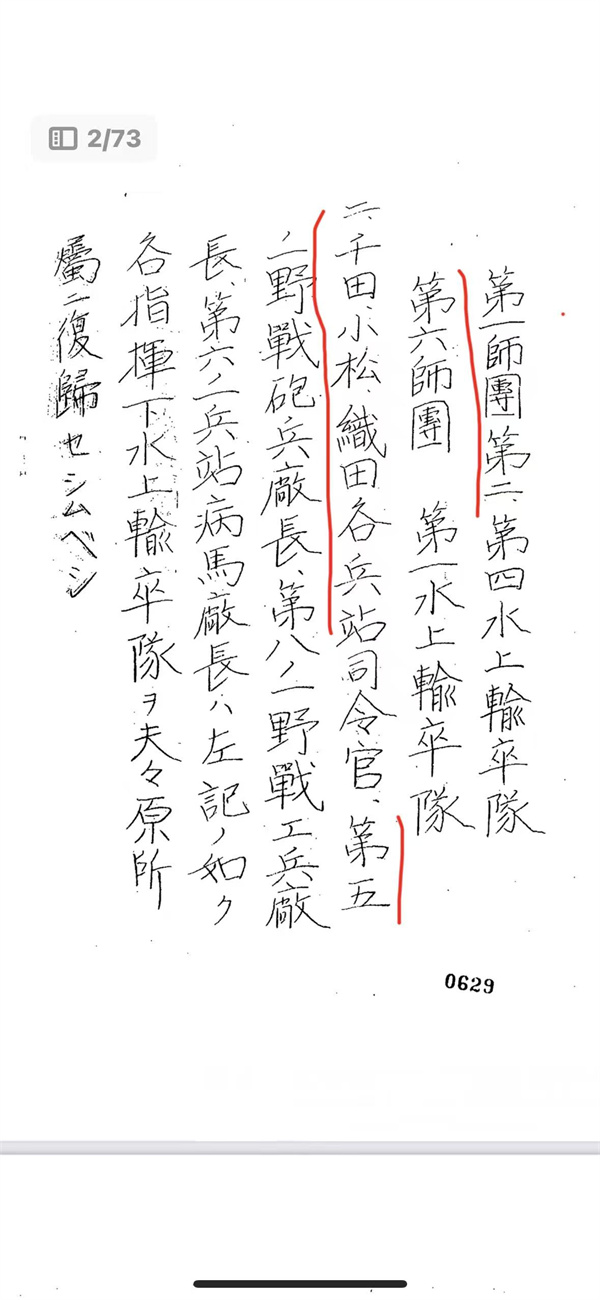 2/73
第一師團第二、第四水上輸卒隊
第六師團 第一水上輸卒隊
二、千田、小松、織田各兵站司令官、第五
ノ一野戰砲兵廠長、第八ノ一野戰工兵廠
長、第六ノ一兵站病馬廠長ハ左記ノ如ク
各指揮下水上輸卒隊ヲ夫々原所
屬ニ復歸セシムベシ
0629